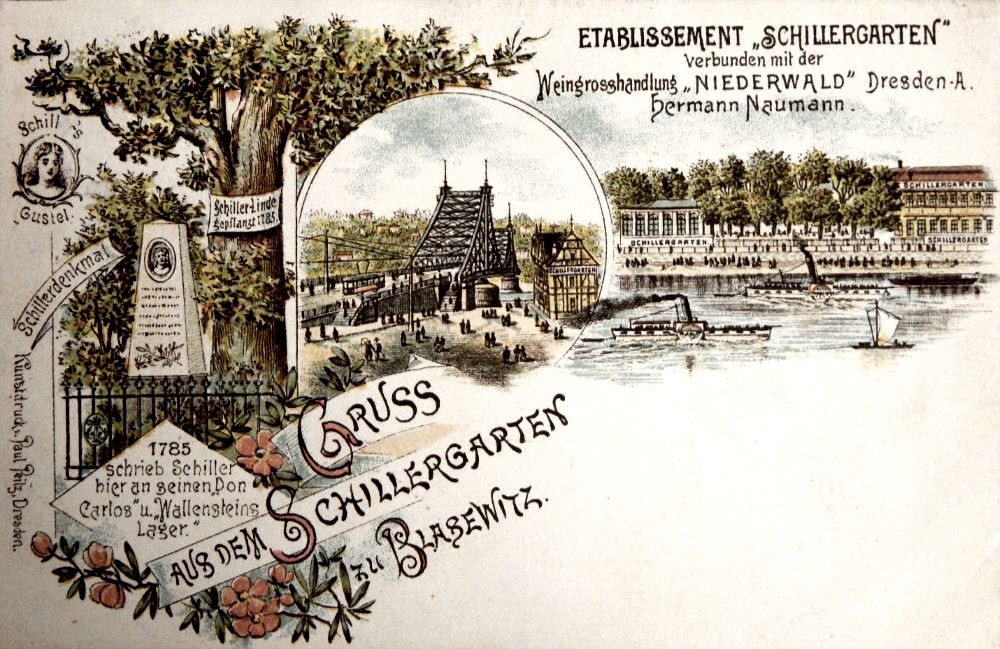 ETABLISSEMENT „SCHILLERGARTEN“
verbunden mit der
Weingrosshandlung „NIEDERWALD“ Dresden-A.
Hermann Naumann.
Schillers
Gustel.
Schiller-Linde
gepflanzt 1785.
Schillerdenkmal
SCHILLERGARTEN
SCHILLERGARTEN
SCHILLERGARTEN
SCHILLERGARTEN
1785
schrieb Schiller
hier an seinen „Don
Carlos“ u. „Wallensteins
Lager.“
GRUSS
AUS DEM SCHILLERGARTEN
ZU BLASEWITZ.
Kunstdruck v. Paul Peitz, Dresden.